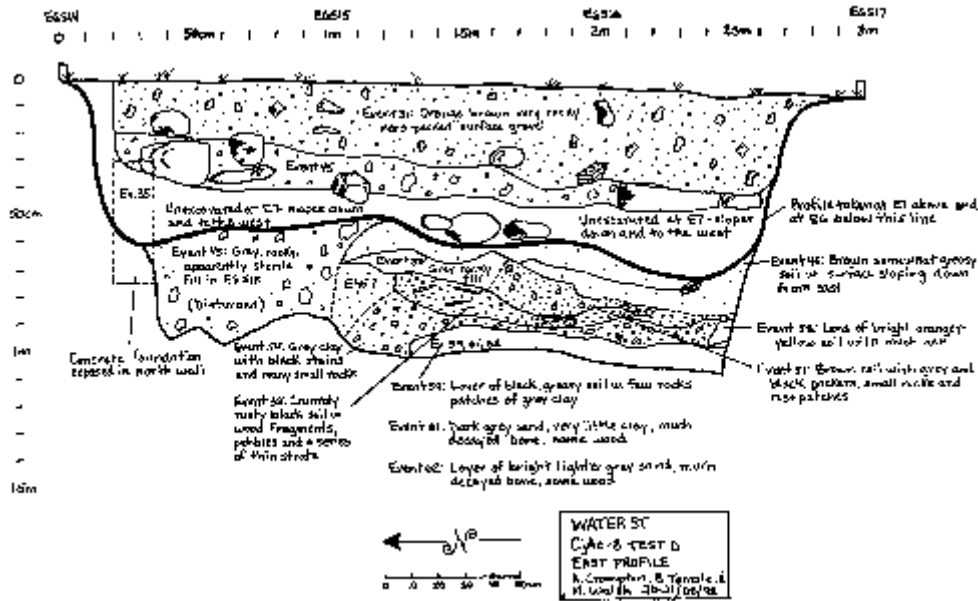 E6S14 E6S15 E6S16 E6S17
0 50cm 1m 15m 2m 25m 3m
0
50cm
1m
15m
Event 31: Orange brown very rocky
hard packed surface gravel
Event 45
Ev. 35
Unexcavated at E7 slopes down
and to the west
Unexcavated at E7 - slopes
down and to the west
Profile taken at E7 above and
at E6 below this line
Event 43: Grey, rocky,
apparently sterile
fill in E6S15
(Disturbed)
Grey rocky
fill
Event 46: Brown somewhat greasy
soil w. surface sloping down
from east
Event 58: Lens of bright orange-
yellow soil with
Event 51: Brown soil with grey and
black pockets, small rocks and
rust patches
Concrete foundation
exposed in north wall
Event 57: Grey clay
with black stains
and many small rocks
Crumbly
rusty black soil w.
wood fragments,
pebbles and a series
of thin strata
Event 59: Layer of black, greasy soil w. few rocks
patches of grey clay
Event 61: Dark grey sand, very little clay, much
decayed bone, some wood
Event 62: Layer of bright lighter grey sand, much
decayed bone, some wood
N
0 10 20 30 40 50cm
WATER ST
CjAe-8 TEST D
EAST PROFILE
A. Crompton, B. Temple &
M. Walsh